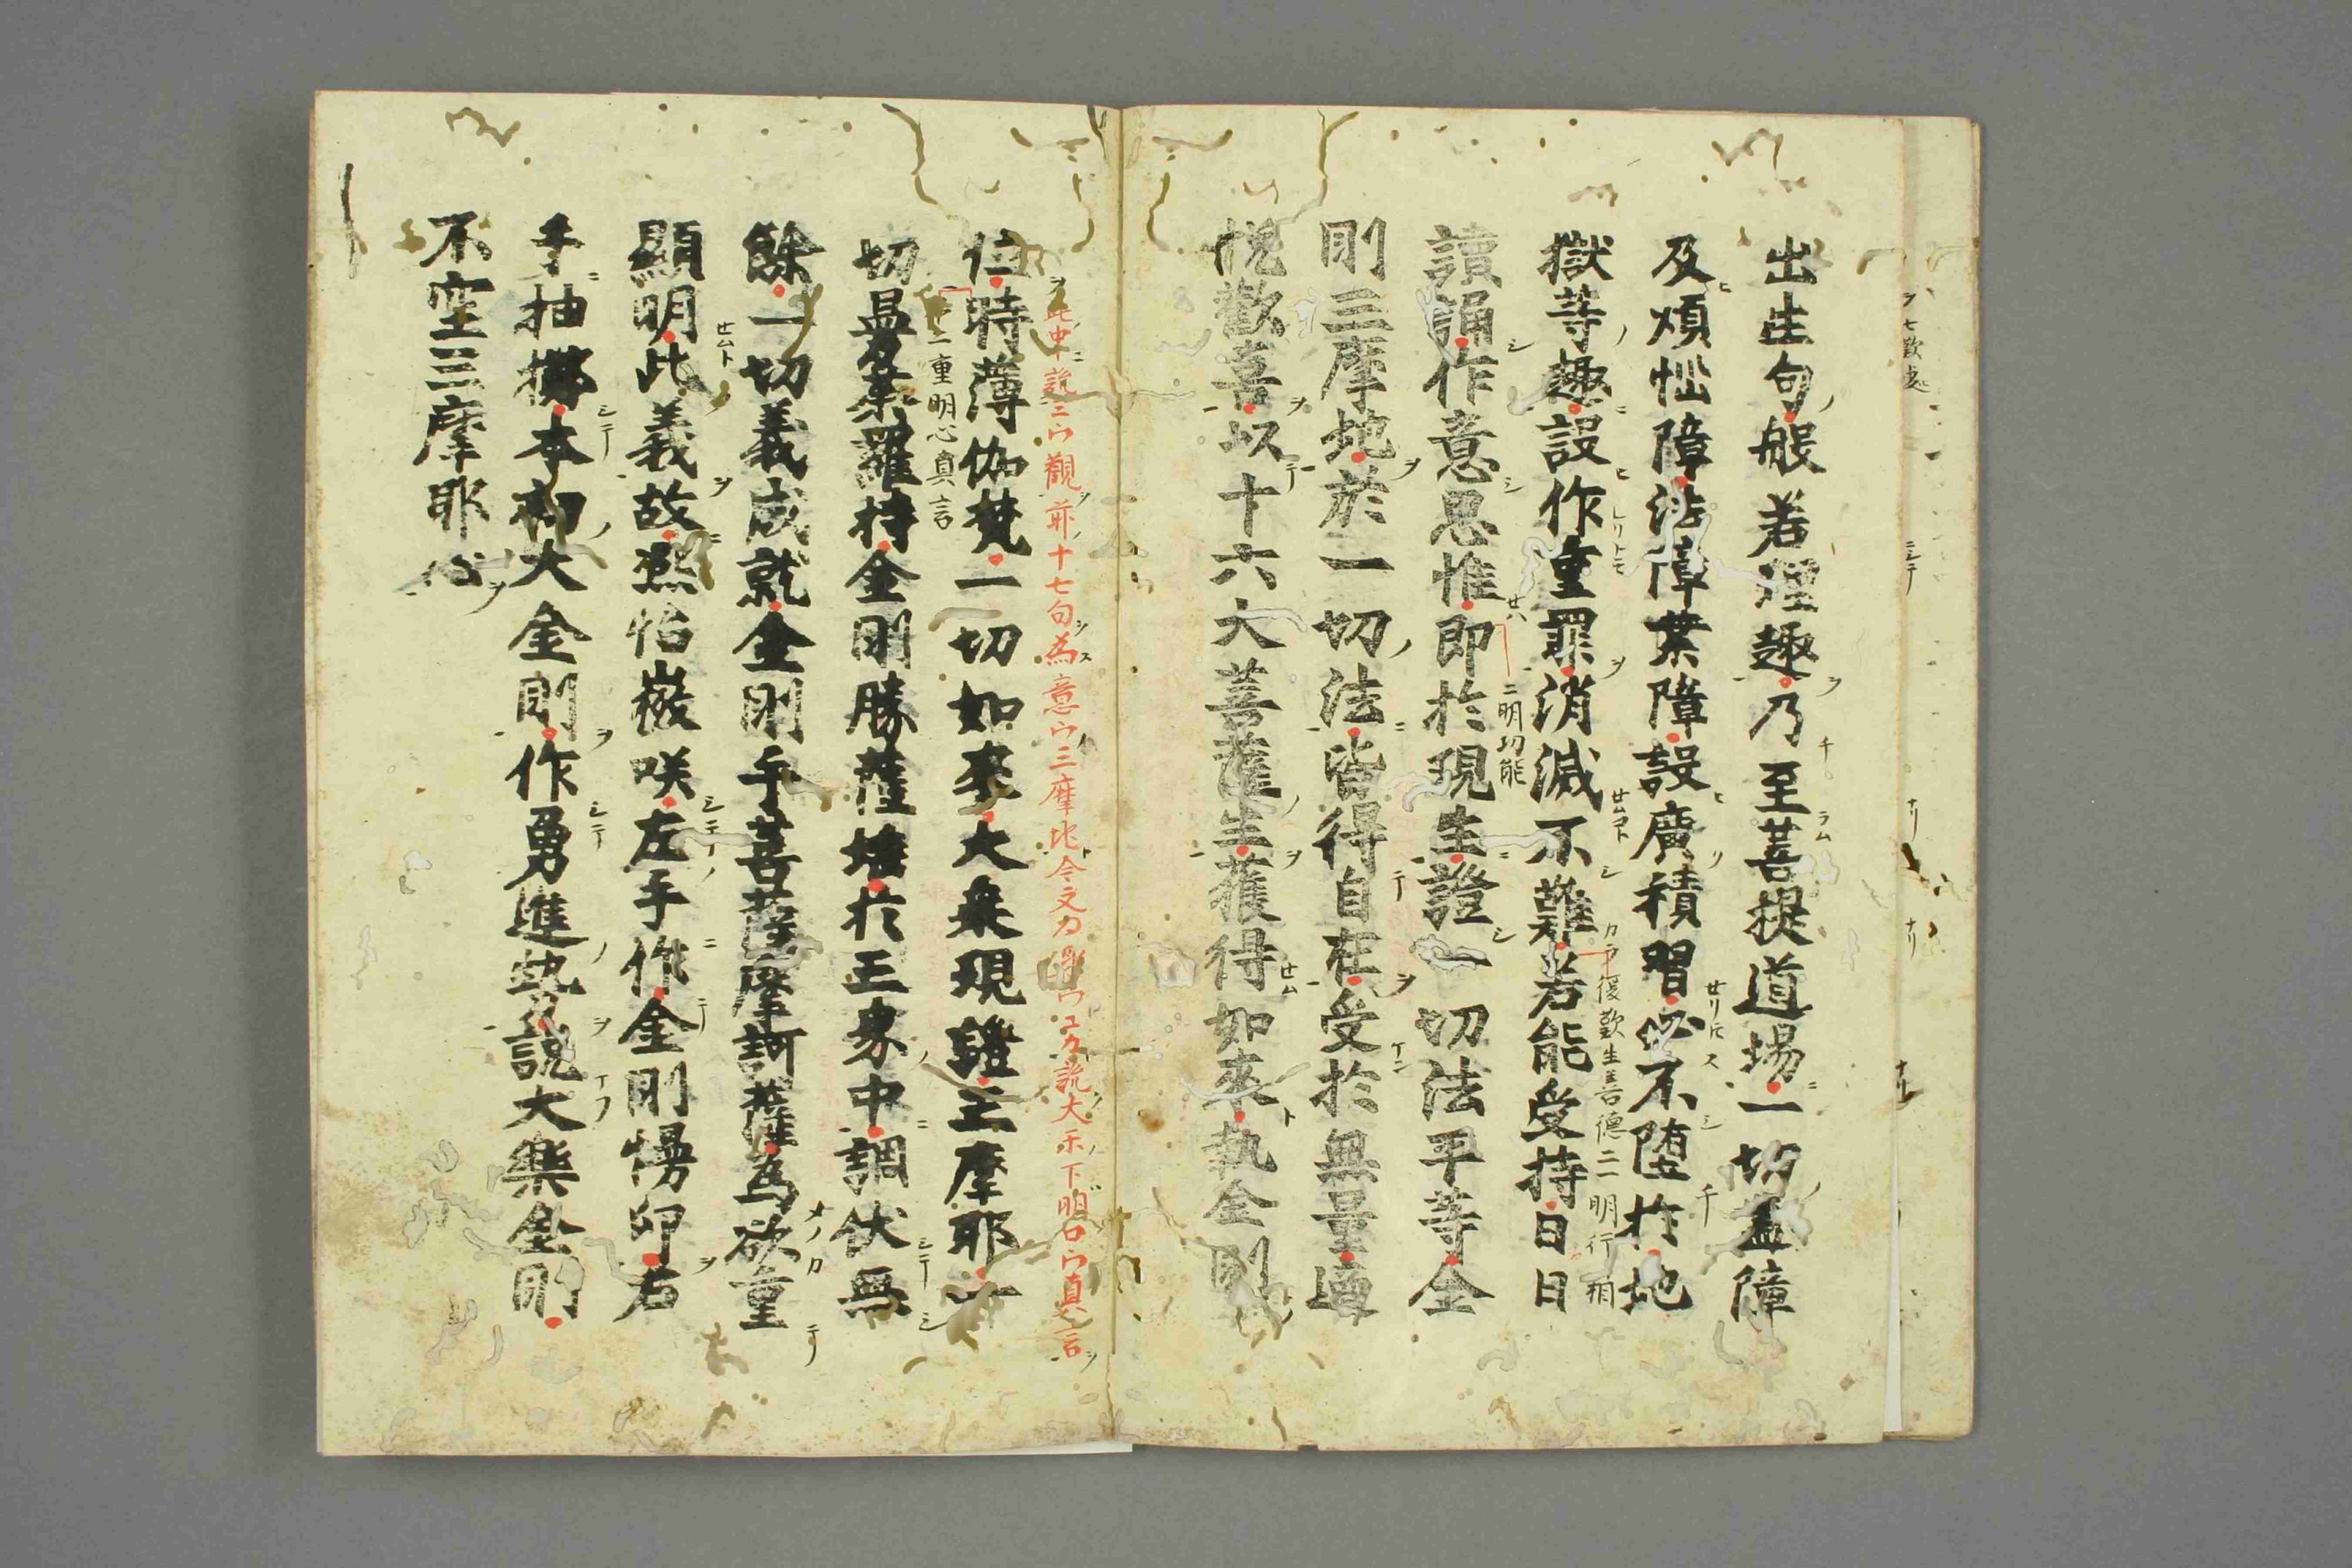 出生句般若理趣乃至菩提道場一切蓋障
及煩惱障法障業障設廣積習必不墮於地
獄等趣設作重罪消滅不難若能受持日日
讀誦作意思惟即於現生證一切法平等金
剛三摩地於一切法皆得自在受於無量適
悅歡喜以十六大菩薩生獲得如來執金剛
位時薄伽梵一切如來大乘現證三摩耶一
切曼荼羅持金剛勝薩埵於三界中調伏無
餘一切義成就金剛手菩薩摩訶薩為欲重
顯明此義故熙怡微咲左手作金剛慢印右
手抽擲本初大金剛作勇進勢說大樂金剛
不空三摩耶心
復歎生善德二一明行相
二明功能
二重明心真言